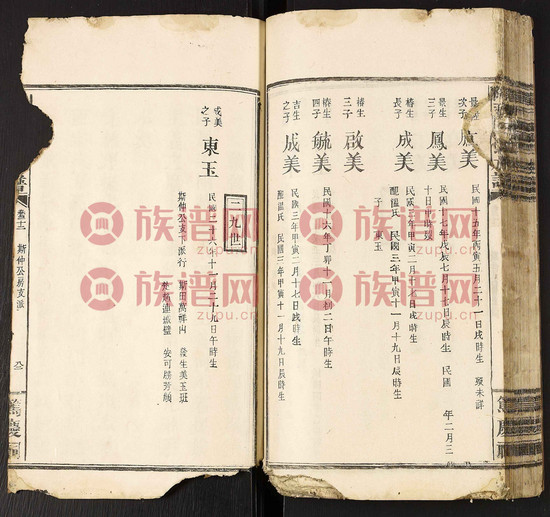 景生
次子
美
民國十五年丙寅五月二十一日戌時生 歿未詳
景生
三子
鳳美
民國十七年戊辰七月十七日辰時生 民國 年二月三
十日
椿生
長子
成美
民國三年甲寅二月十七日戌時生
配温氏 民國三年甲寅十一月十九日辰時生
子 東玉
椿生
三子
啟美
椿生
四子
毓美
民國十六年丁卯十一月初二日午時生
吉生
之子
成美
民國三年甲寅二月十七日戌時生
配温氏 民國三年甲寅十一月十九日辰時生
二九世
成美
之子
東玉
民國二十六年十一月二十九日午時生
斯仲公支下派行 斯田萬祥内 發生美玉班
安可
卷十二 斯仲公房支派
篤慶
族谱网
zupu.cn
族谱网
zupu.cn
族谱网
zupu.cn
族谱网
zupu.cn